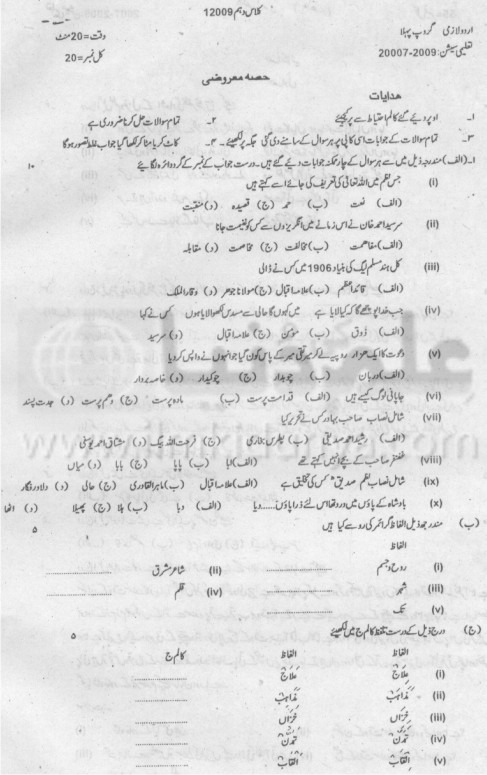 کلاس دہم 12009
اردو لازمی گروپ پہلا وقت=20 منٹ
تعلیمی سیشن: 2009-20007 کل نمبر=20
حصہ معروضی
ہدایات
۱۔ اوپر دیے گئے کالم احتیاط سے پر کیجئے ۲۔ تمام سوالات حل کرنا ضروری ہے
۳۔ تمام سوالات کے جوابات اسی کاپی پر ہر سوال کے سامنے دی گئی جگہ پر لکھیئے۔ ۳۔ کاٹ کر یا مٹا کر لکھا گیا جواب غلط تصور ہوگا
۱۔(الف) مندرجہ ذیل میں سے ہر سوال کے چار ممکنہ جوابات دیے گئے ہیں۔ درست جواب کے نمبر کے گرد دائرہ لگائیے ۱۰
(i) جس نظم میں اللہ تعالیٰ کی تعریف کی جائے اسے کہتے ہیں
(الف) نعت (ب) حمد (ج) قصیدہ (د) منقبت
(ii) سرسید احمد خان نے اس زمانے میں انگریزوں سے کس کو غنیمت جانا
(الف) مفاہمت (ب) مخالفت (ج) مخاصمت (د) مقابلہ
(iii) کل ہند مسلم لیگ کی بنیاد 1906 میں کس نے ڈالی
(الف) قائد اعظم (ب) علامہ اقبال (ج) مولانا جوہر (د) وقار الملک
(iv) جب خدا پوچھے گا کہ کیا لایا ہے میں کہوں گا حالی سے مسدس لکھوا لایا ہوں کس نے کہا
(الف) ذوق (ب) مومن (ج) علامہ اقبال (د) سرسید
(v) دعوت کا ایک ہزار روپیہ لے کر میر تقی میر کے پاس کون گیا جو انہوں نے واپس کر دیا
(الف) دربان (ب) چوبدار (ج) چوکیدار (د) خاصہ بردار
(vi) جاپانی لوگ کیسے ہیں (الف) قدامت پرست (ب) مادہ پرست (ج) وہم پرست (د) جدت پسند
(vii) شامل نصاب صاحب بہادر کس نے تحریر کیا
(الف) رشید احمد صدیقی (ب) پطرس بخاری (ج) فرحت اللہ بیگ (د) مشتاق احمد یوسفی
(viii) غضنفر صاحب کے بچے انہیں کہتے تھے (الف) ابا (ب) پاپا (ج) بابا (د) میاں
(ix) شامل نصاب نظم صدیق کس کی تخلیق ہے (الف) علامہ اقبال (ب) ماہر القادری (ج) حالی (د) دلاور فگار
(x) بادشاہ کے پاؤں میں درد تھا اس لئے ذرا پاؤں......دیا (الف) دبا (ب) ہلا (ج) پھیلا (د) اٹھا
(ب) مندرجہ ذیل الفاظ گرائمر کی رو سے کیا ہیں ۵
الفاظ
(i) روح و جسم (ii) شاعر مشرق
(iii) شہر (iv) قلم
(v) تک
(ج) درج ذیل کے درست تلفظ کالم ج میں لکھئیے ۵
الفاظ الفاظ کالم ج
(i) عِلاج عَلاج
(ii) مَذاہِب
(iii) خِزاں خَزاں
(iv) تمدن تمدن
(v) القاب القاب
www.ilmkidunya.com